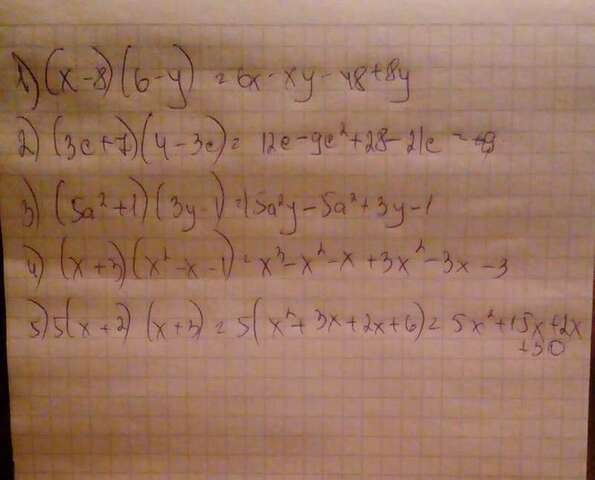 1) (x-8)(6-y) = 6x - xy - 48 + 8y
2) (3c+7)(4-3c) = 12c - 9c² + 28 - 21c =
3) (5a²+1)(3y-1) = 15a²y - 5a² + 3y - 1
4) (x+3)(x²-x-1) = x³ - x² - x + 3x² - 3x - 3
5) 5(x+2)(x+3) = 5(x²+3x+2x+6) = 5x²+15x+2x
+30